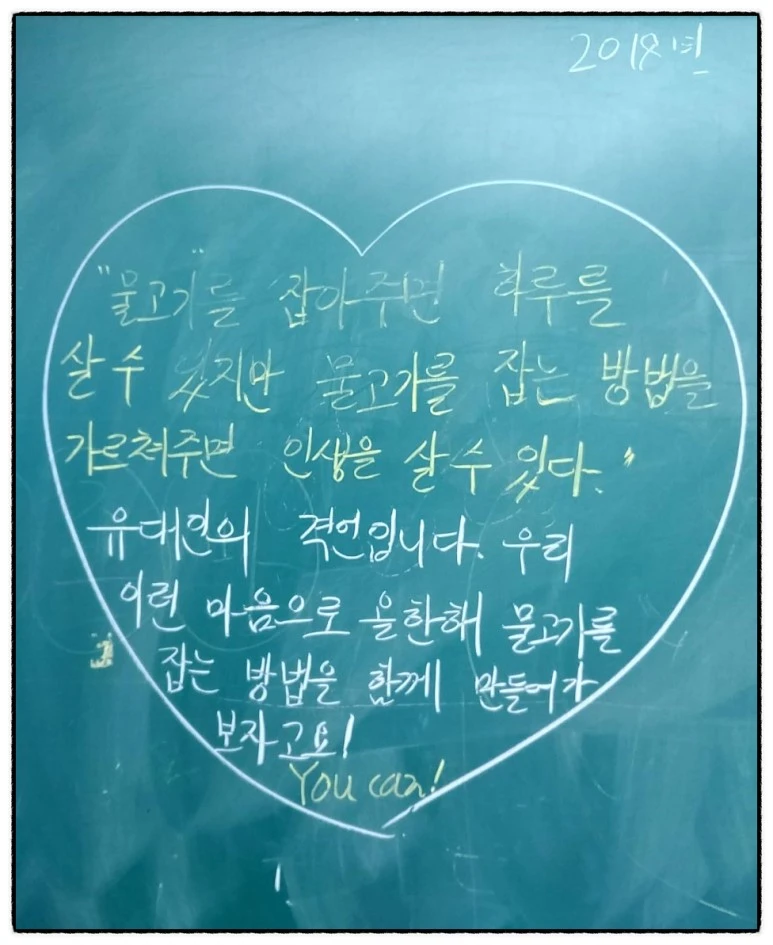 2018년
"물고기"를 잡아주면 하루를
살 수 있지만 물고기를 잡는 방법을
가르쳐주면 인생을 살 수 있다."
유대인의 격언입니다. 우리
이런 마음으로 올한해 물고기를
잡는 방법을 함께 만들어가
보자고요!
You can!